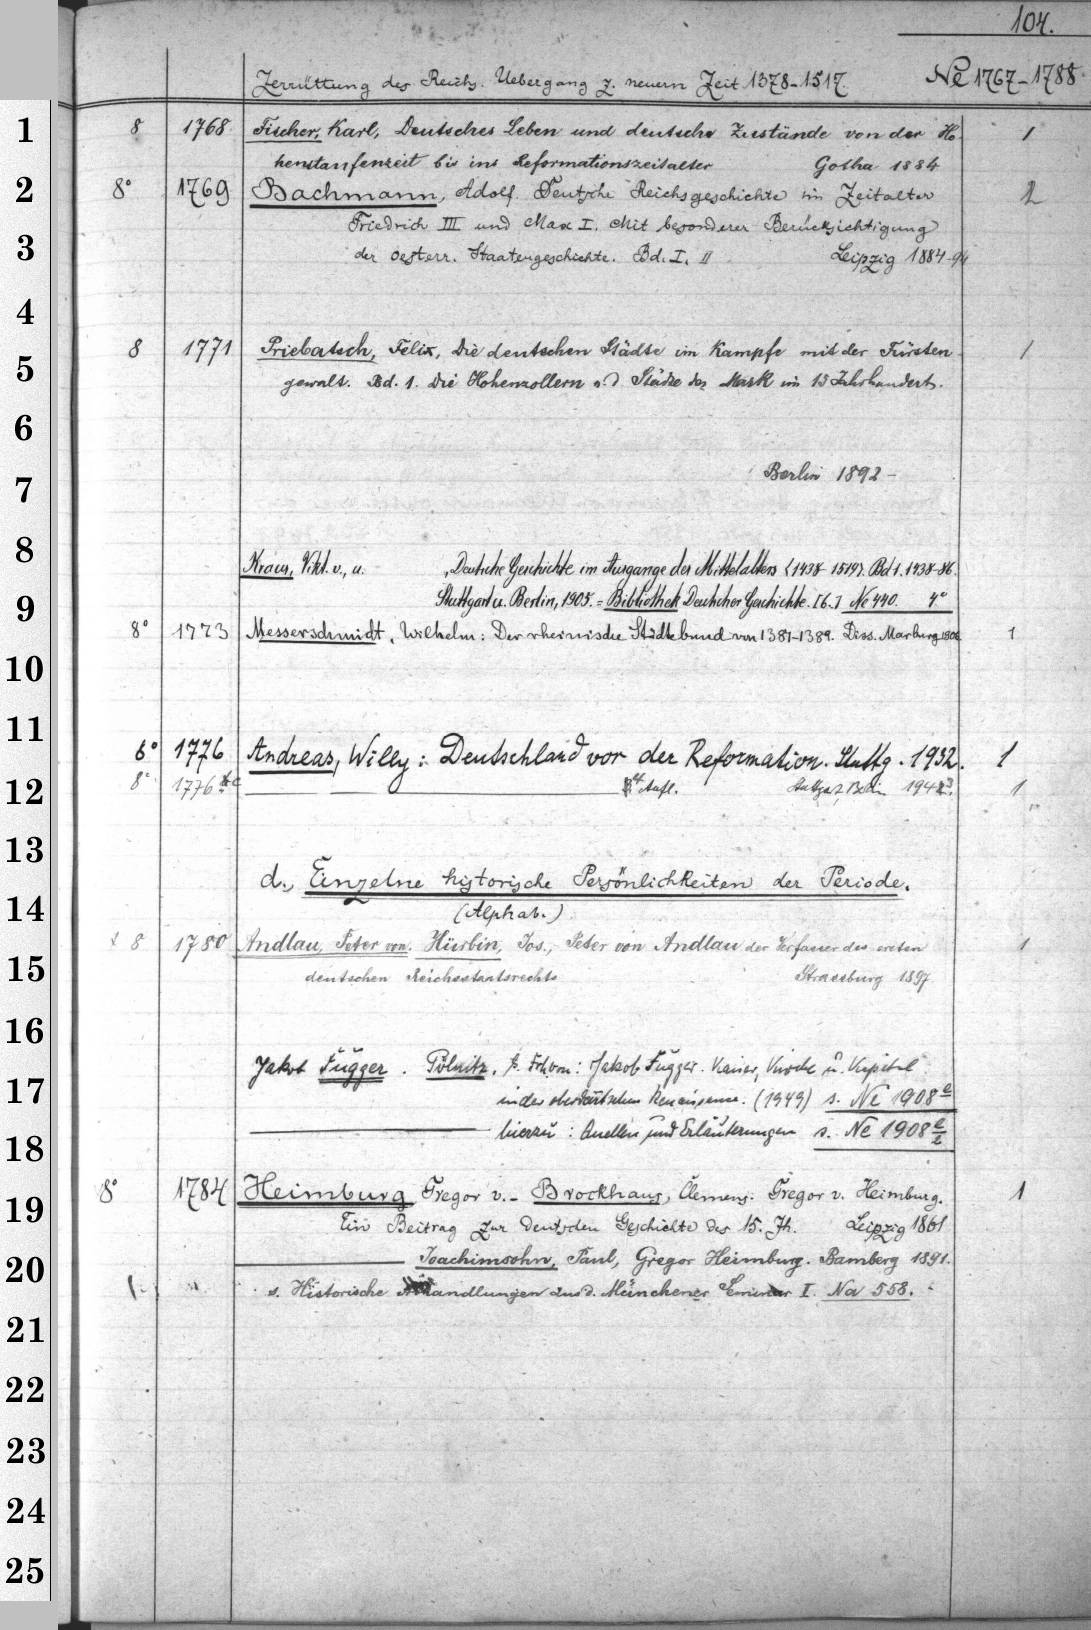 104.
Zerrüttung des Reichs. Uebergang z. neuern Zeit 1378-1517. Ne 1767-1788
1 8 1768 Fischer, Karl, Deutsches Leben und deutsche Zustände von der Ho- 1
henstaufenzeit bis ins Reformationszeitalter Gotha 1884
2 8° 1769 Bachmann, Adolf. Deutsche Reichsgeschichte im Zeitalter 2
Friedrich III und Max I. Mit besonderer Berücksichtigung
3 der oesterr. Staatengeschichte. Bd. I. II Leipzig 1884-94
4
5 8 1771 Priebatsch, Felix, Die deutschen Städte im Kampfe mit der Fürsten 1
gewalt. Bd. 1. Die Hohenzollern u. d Städte der Mark im 15 Jahrhundert.
6
7 Berlin 1892-
8 Kraus, Vikt. v., u. Deutsche Geschichte im Ausgange des Mittelalters (1438-1519). Bd 1. 1438-86.
9 Stuttgart u. Berlin, 1905. = Bibliothek Deutscher Geschichte. [6.] Ne 440. 4°
8° 1773 Messerschmidt, Wilhelm: Der rheinische Städtebund von 1381-1389. Diss. Marburg 1906. 1
10
11 6° 1776 Andreas, Willy: Deutschland vor der Reformation. Stuttg. 1932. 1
12 8° 1776 Aufl. 194 1
13
d., Einzelne historische Persönlichkeiten der Periode.
14 (Alphab.)
8 1780 Andlau, Peter von. Hürbin, Jos., Peter von Andlau der Verfasser des ersten 1
15 deutschen Reichsstaatsrechts Strassburg 1897
16
Jakob Fugger. Pölnitz, Frh. von: Jakob Fugger. Kaiser, Kirche u. Kapital
17 in der oberdeutschen Renaissance. (1949) s. Ne 1908
18 hierzu: Quellen und Erläuterungen s. Ne 1908
19 8° 1784 Heimburg Gregor v. - Brockhaus, Clemens: Gregor v. Heimburg. 1
Ein Beitrag zur deutschen Geschichte des 15. Jh. Leipzig 1861
20 Joachimsohn, Paul, Gregor Heimburg. Bamberg 1891.
s. Historische Abhandlungen aus d. Münchener Seminar I. Na 558.
21
22
23
24
25